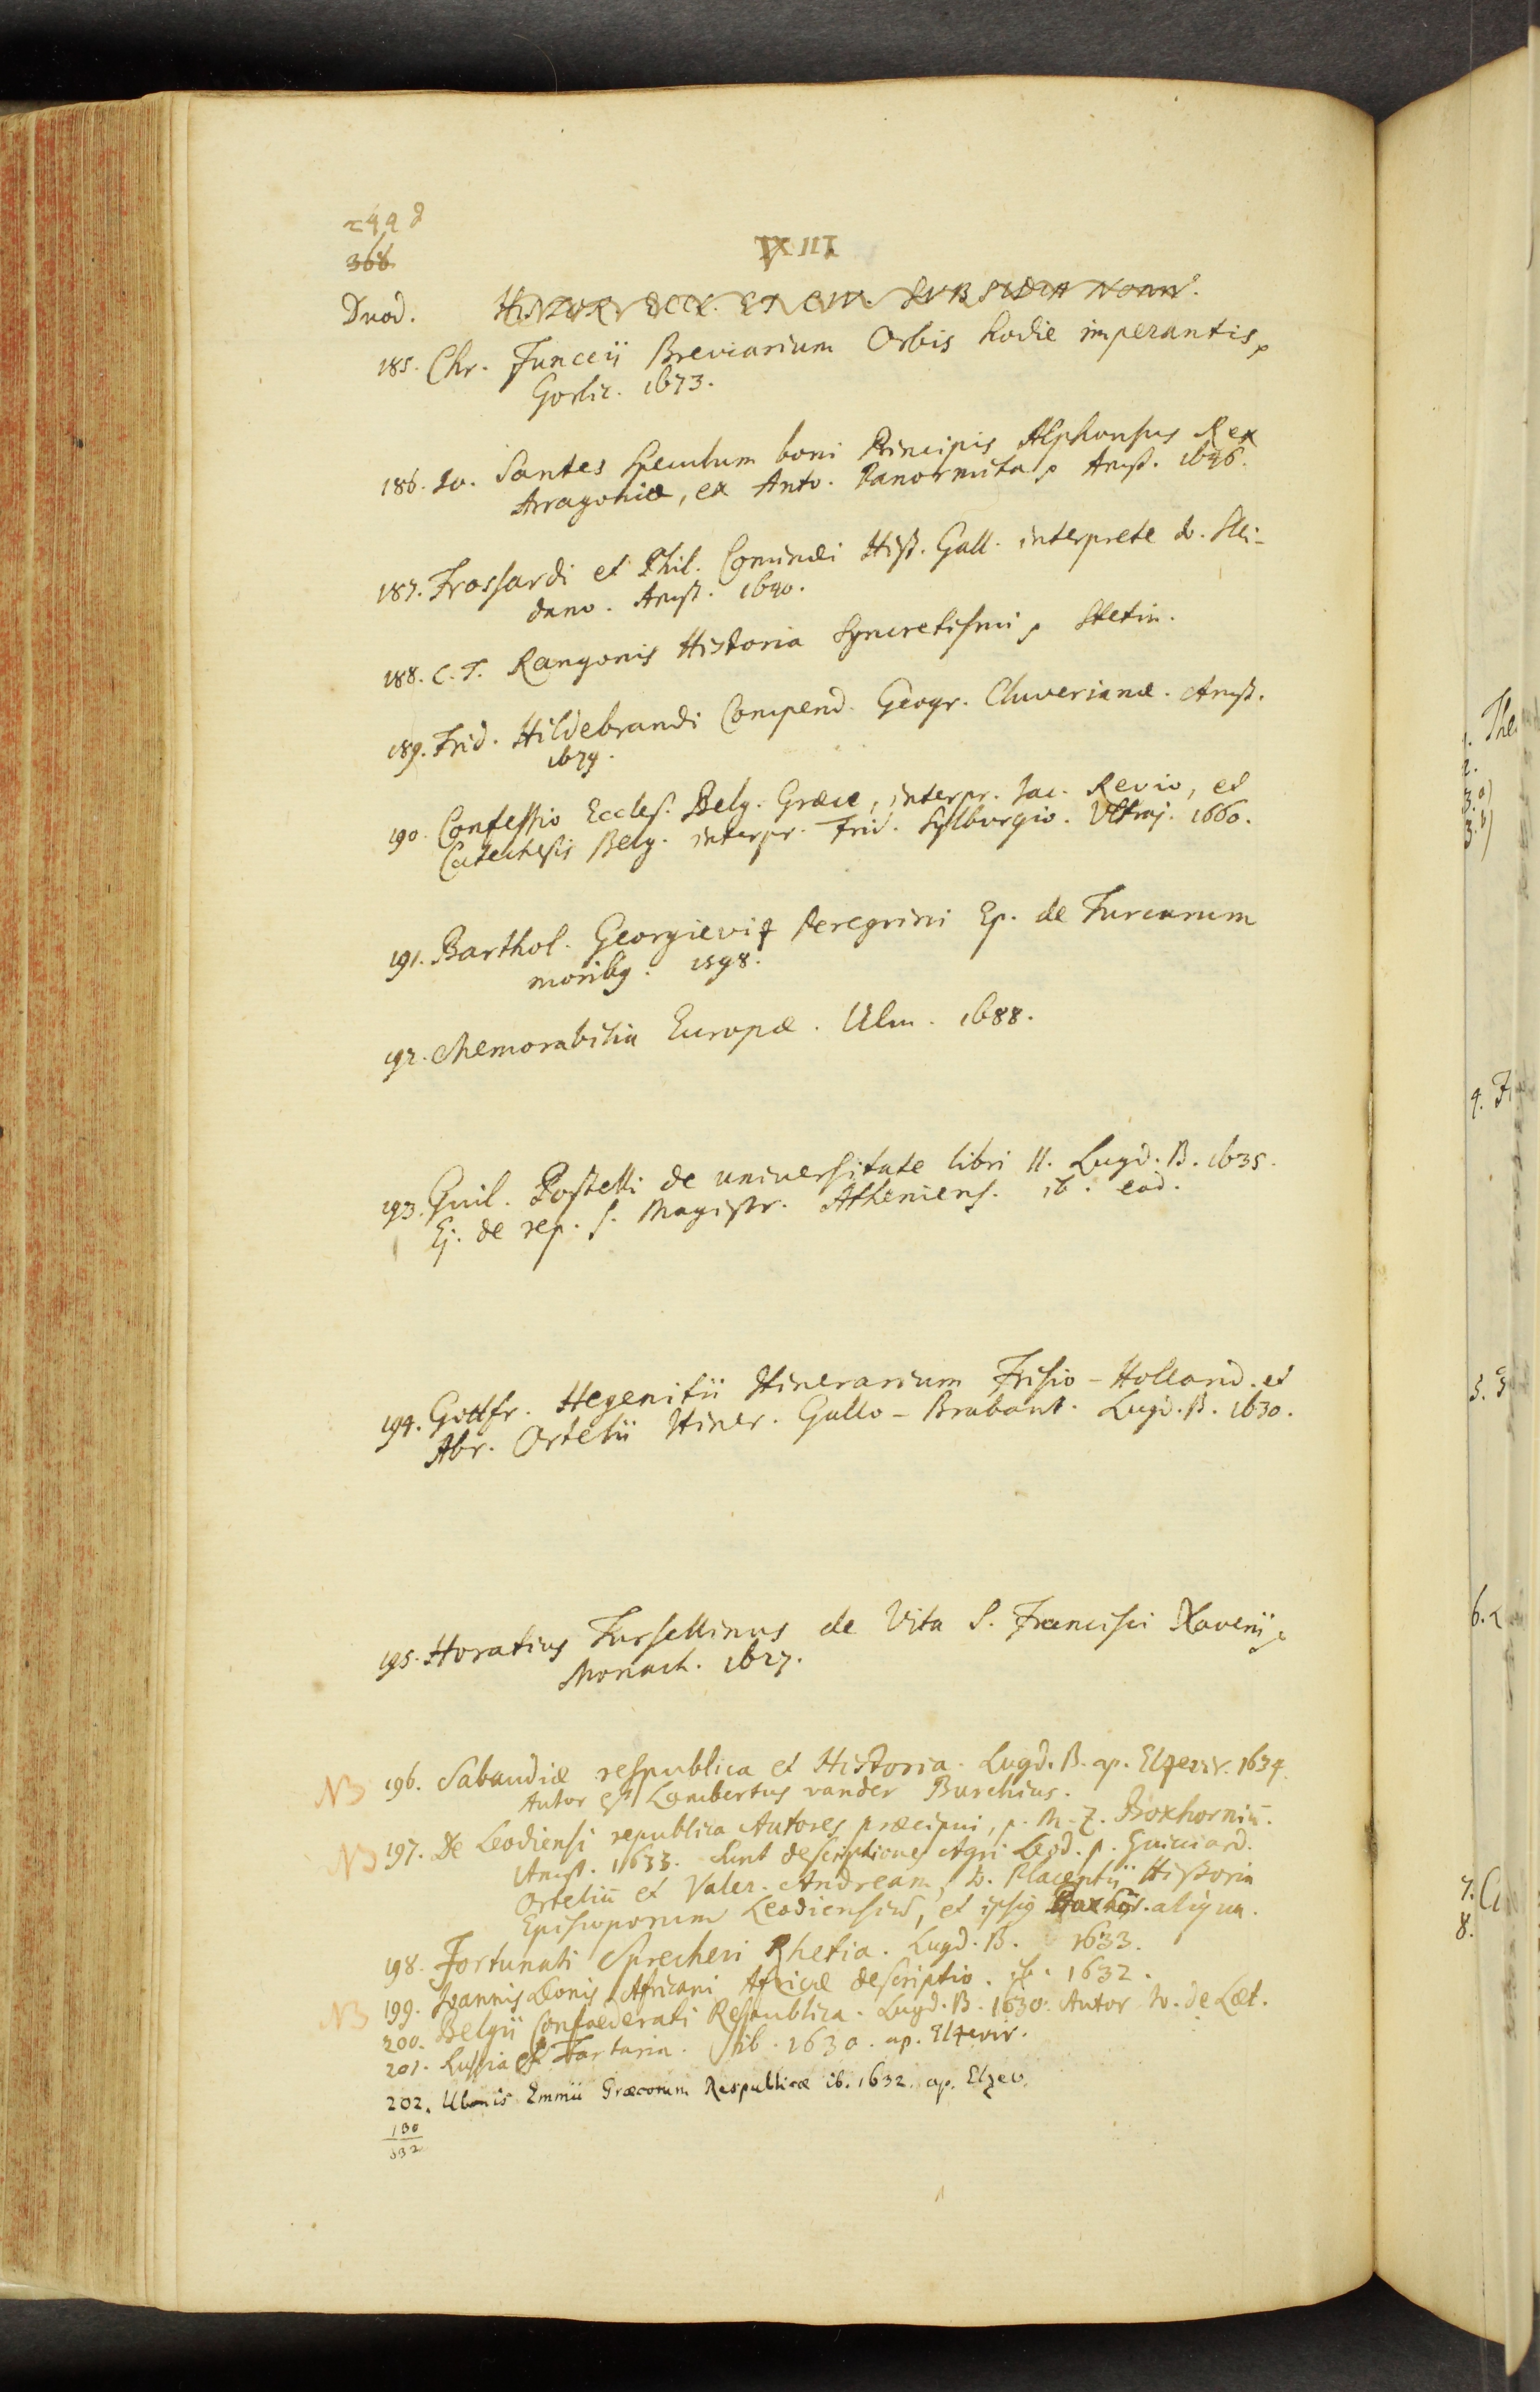 368
XIII
Duod. HISTOR. ECCL. ET CIV. SUBSIDIA NONN.
185. Chr. Funccii Breviarium Orbis hodie imperantis,
Gorlic. 1673.
186. Jo. Santes Speculum boni Principis Alphonsus Rex
Arragoniæ, ex Anto. Panormita, Amst. 1646.
187. Frossardi et Phil. Cominæi Hist. Gall. interprete Jo. Slei-
dano. Amst. 1640.
188. C. T. Rangonis Historia Syncretismi, Stetin.
189. Frid. Hildebrandi Compend. Geogr. Cluverianæ. Amst.
1674.
190. Confessio Eccles. Belg. Græce, interpr. Jac. Revio, et
Catechesis Belg. interpr. Frid. Sylburgio. Ultraj. 1660.
191. Barthol. Georgieviz Peregrini Ep. de Turcarum
moribg. 1598.
192. Memorabilia Europæ. Ulm. 1688.
193. Guil. Postelli de universitate libri II. Lugd. B. 1635.
Ej. de rep. s. Magistr. Atheniens. ib. eod.
194. Gottfr. Hegenitii Itinerarium Frisio-Holland. et
Abr. Ortelii Itiner. Gallo-Brabant. Lugd. B. 1630.
195. Horatius Tursellinus de Vita S. Francisci Xaverii,
Monach. 1627.
NB 196. Sabaudiæ respublica et Historia. Lugd. B. ap. Elzevir. 1634.
Autor est Lambertus vander Burchius.
NB 197. De Leodiensi republica Autores præcipui, p. M. Z. Boxhorniū.
Amst. 1633. Sunt descriptiones Agri Leod. p. Guicciard.
Orteliū et Valer. Andream, Jo. Placentii Historia
Episcoporum Leodiensiū, et ipsig Boxh. aliqua.
198. Fortunati Sprecheri Rhetia. Lugd. B. 1633.
NB 199. Joannis Leonis Africani Africæ descriptio. ib. 1632.
200. Belgii Confoederati Respublica. Lugd. B. 1630. Autor Jo. de Læt.
201. Russia et Tartaria. ib. 1630. ap. Elzevir.
202. Ubonis Emmii Græcorum Respublicæ ib. 1632. ap. Elzev.
130
332